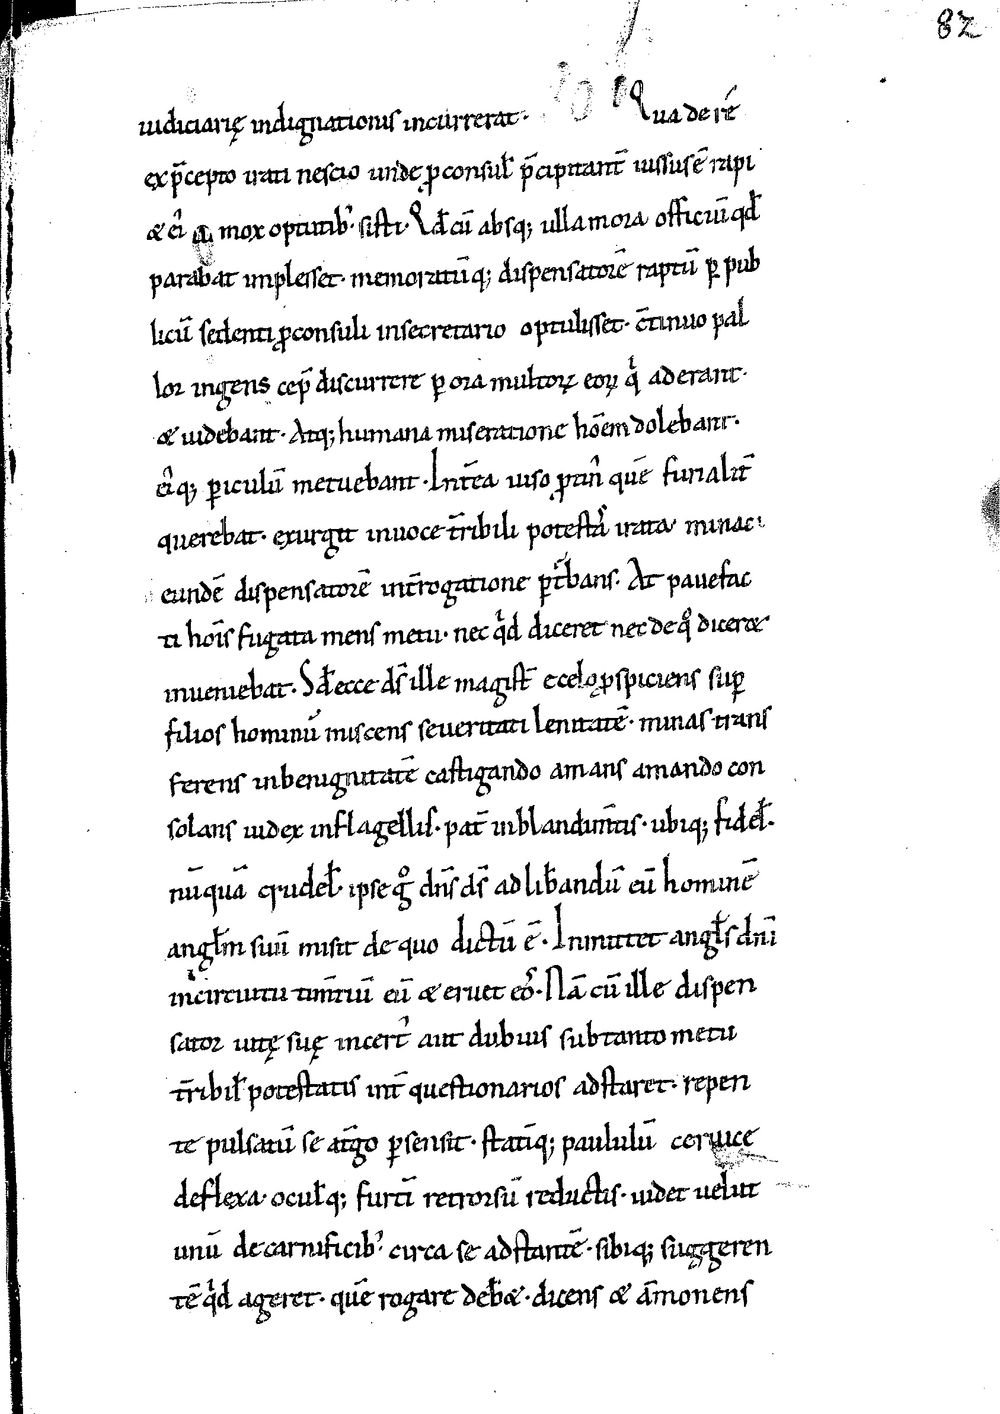 82
iudiciarię indignationis incurrerat. Qua de rē
ex p̄cepto irati nescio unde ꝓconsul̄ p̄cipitant̄ iussus ē rapi
& ei᷒ mox optutib᷒ sisti. Qd̄ cū absq; ulla mora officiū qd̄
parabat implesset. memoratūq; dispensatorē raptū ꝑ pub
licū sedenti ꝓconsuli insecretario optulisset. c̄tinuo pal
lor ingens cep̄ discurrere ꝑ ora multoꝝ eoꝝ qi aderant.
& uidebant. Atq; humana miseratione hōem dolebant.
ei᷒q; ꝑiculū metuebant. Int̄ea uiso ꝓtin᷒ quē furialit̄
querebat. exurgit inuoce t̄ribili potestas irata minaci
eundē dispensatorē int̄rogatione ꝑt̄bans. At pauefac
ti hoīs fugata mens metu. nec qid diceret nec de qo dicer&
inueniebat. Sd̄ ecce ds̄ ille magist̄ e celo ꝓspiciens suꝑ
filios hominū miscens seueritati lenitatē. minas trans
ferens inbenignitatē castigando amans amando con
solans iudex inflagellis. pat̄ inblandim̄tis. ubiq; fidel̄.
nūquā crudel̄. ipse go dn̄s ds̄ ad lib̄andū eū hominē
angl̄m suū misit de quo dictū ē. Inmittet angl̄s dn̄i
incircuitu tim̄tiū eū & eruet eos. Nā cū ille dispen
sator uitę suę incert᷒ aut dubius subtanto metu
t̄ribil̄ potestatis int̄ questionarios adstaret. repen
te pulsatū se at̄go ꝑsensit. statīq; paululū ceruice
deflexa. ocul̄q; furtī retrorsū reductis. uidet uelut
unū de carnificib᷒ circa se adstantē. sibiq; suggeren
tē qid ageret. quē rogare deb&. dicens & āmonens